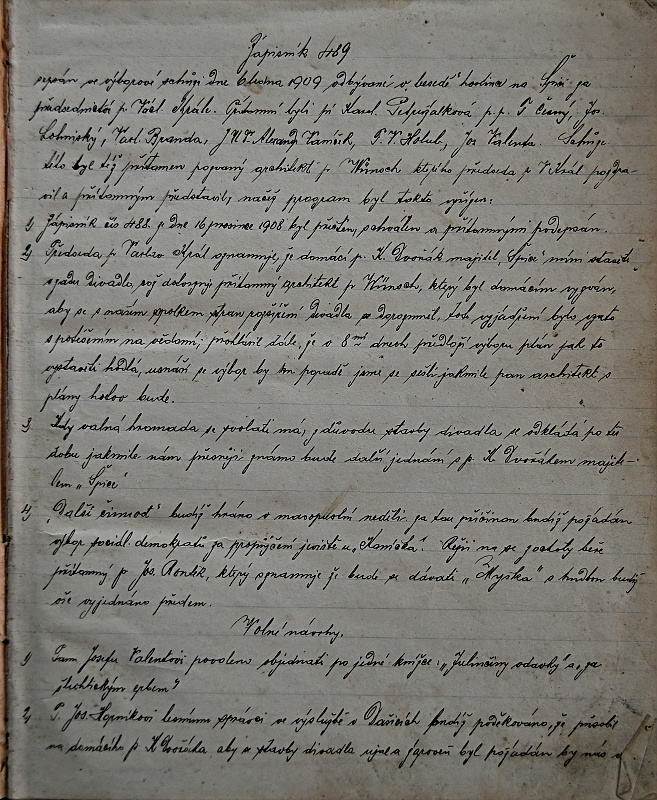 Zápisník 489
sepsán ve výborové schůzi dne 6 ledna 1909 odbývané v besedě hodince na Špici za
předsednictví p. Václ. Krále. Přítomni byli pí Karol. Petržálková p.p. F. Černý, Jos.
Vacl. Branda, Alexandr Vaniček, F. V. Holub, Jos Valenta. Schůze
této byl též přítomen pozvaný architekt p. Wünsch kterého předseda p V Král pozdra-
vil a přítomným představil, načež program byl takto vyřízen:
1) Zápisník čís 488 z dne 16 prosince 1908 byl přečten, schválen a přítomnými podepsán.
2) Předseda p. Václav Král oznamuje, že domácí p. K. Dvořák majitel "Špice" míní stavěti
divadlo, což dotvrzuje přítomný architekt p. Wünsch, který byl domácím vyzván,
aby se s naším spolkem stran rozšíření divadla dorozuměl, toto vyjádření bylo vzato
s potěšením na vědomí; prohlásil dále, že v 8 mi dnech předloží výboru plán jak to
vystavěti hodlá, usnáší se výbor by ku poradě jsme se sešli jakmile pan architekt s
plány hotov bude.
3) Kdy valná hromada se svolati má, z důvodu stavby divadla se odkládá po tu
dobu jakmile nám přesněji známo bude další jednání s p. K Dvořákem majite-
lem "Špice"
4) "Další činnost" budiž hráno v masopustní neděli za tou příčinou budiž požádán
výbor sociál. demokratů za propůjčení jeviště u "Kaničků". Režii na se
přítomný p. Jos. Rontik, který oznamuje že bude se dávati "Myška" s hudbou budiž
vše vyjednáno předem.
Volné návrhy.
1) Panu Josefu Valentovi povoleno objednati po jedné knížce: "Julinčiny vdavky" a "za
šlechtickým erbem"
2) P. Jos. lesnímu správci ve výslužbě v Dašicích budiž poděkováno, že působil
na domácího p. K Dvořáka aby se stavby divadla ujal a zároveň byl požádán by nás v